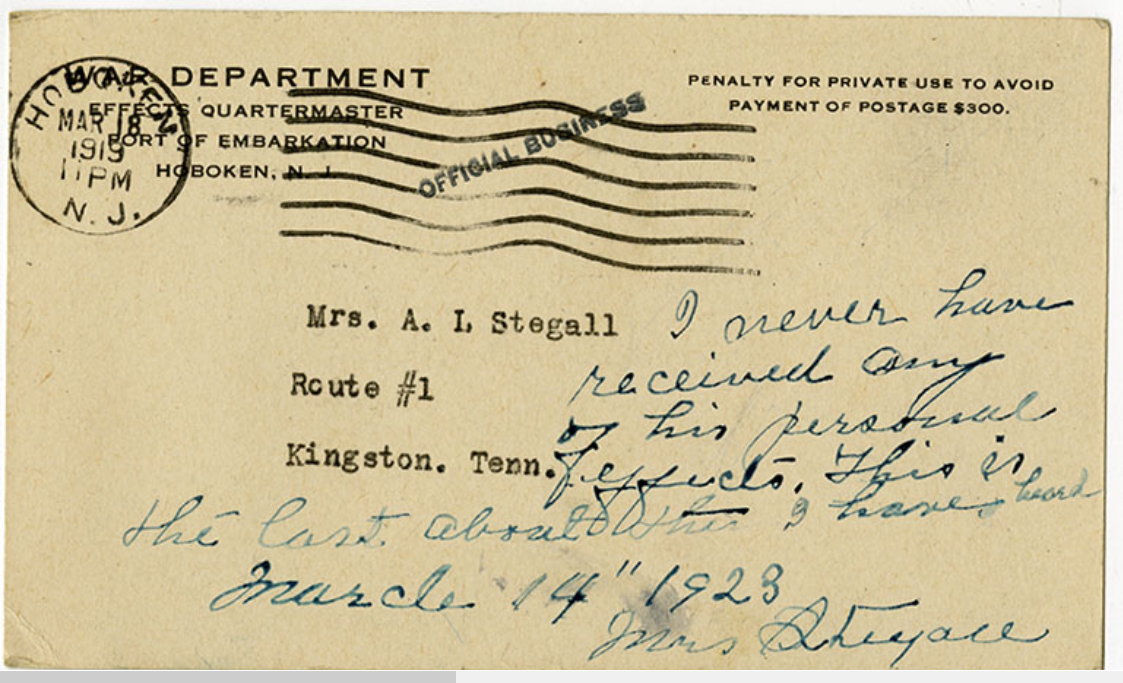 WAR DEPARTMENT
EFFECTS QUARTERMASTER
PORT OF EMBARKATION
HOBOKEN, N. J.
HOBOKEN
MAR 18
1919
11 PM
N. J.
OFFICIAL BUSINESS
PENALTY FOR PRIVATE USE TO AVOID
PAYMENT OF POSTAGE $300.
Mrs. A. L Stegall
Route #1
Kingston. Tenn.
I never have
received any
of his personal
effects. This is
the last about this I have heard
March 14" 1923
Mrs Stegall